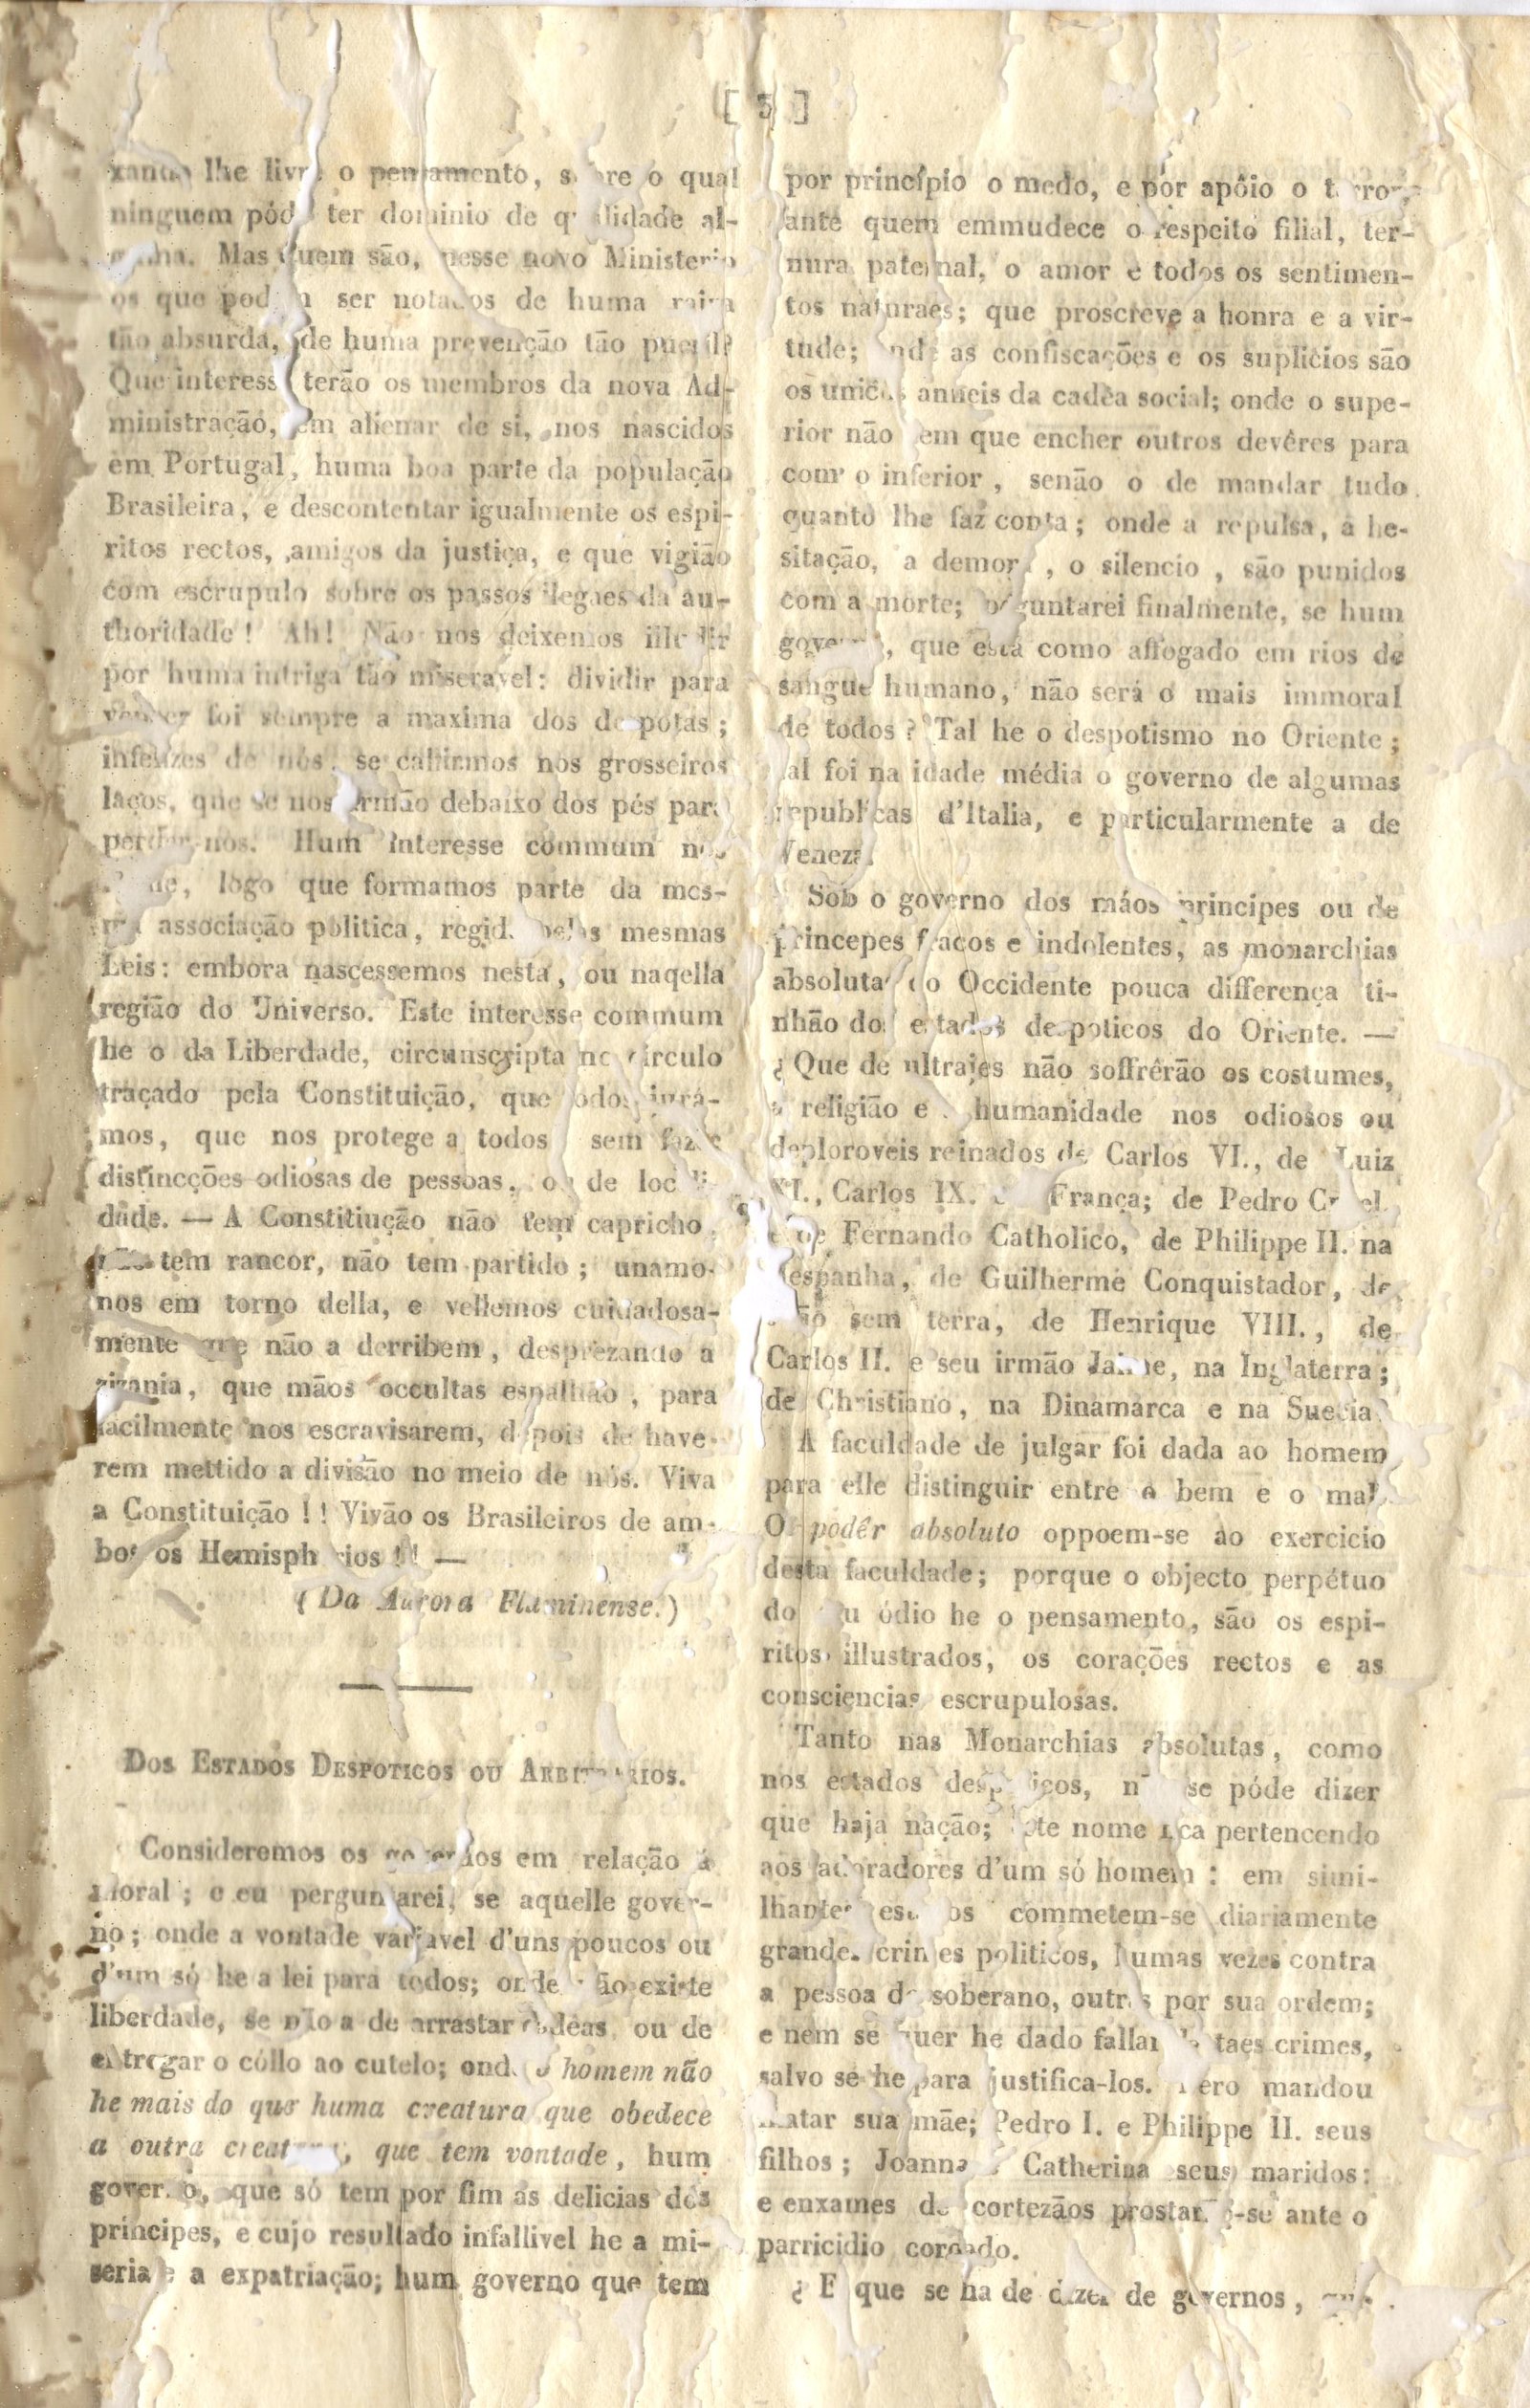 [ 5 ]
lhe o pensamento, o qual
ninguem ter dominio de al-
Mas quem são, nesse novo Ministerio
os que ser notados de huma
tão absurda, de huma prevenção tão pueril?
Que terão os membros da nova Ad-
ministração, em alienar de si, nos nascidos
em Portugal, huma boa parte da população
Brasileira, e descontentar igualmente os espi-
ritos rectos, amigos da justiça, e que vigião
com escrupulo sobre os passos illegaes da au-
thoridade! Ah! Não nos deixemos
por huma intriga tão miseravel: dividir para
vencer foi sempre a maxima dos despotas;
infelizes de nós, se cahirmos nos grosseiros
laços, que se nos armão debaixo dos pés para
perder-nos. Hum interesse commum
logo que formamos parte da mes-
ma associação politica, mesmas
Leis: embora nascessemos nesta, ou naqella
região do Universo. Este interesse commum
he o da Liberdade, circunscripta no circulo
traçado pela Constituição, que jurá-
mos, que nos protege a todos sem fazer
distincções odiosas de pessoas, de
dade. — A Constitiução não tem capricho,
tem rancor, não tem partido; unamo-
nos em torno della, e vellemos cuidadosa-
mente que não a derribem, desprezando a
zizania, que mãos occultas espalhão, para
facilmente nos escravisarem, depois de have-
rem mettido a divisão no meio de nós. Viva
a Constituição!! Vivão os Brasileiros de am-
bos os Hemispherios!!! —
(Da Aurora Fluminense.)
Dos Estados Despoticos ou Arbitrarios.
Consideremos os governos em relação á
moral; e eu perguntarei, se aquelle gover-
no; onde a vontade variavel d'uns poucos ou
d'um só he a lei para todos; onde não existe
liberdade, se não a de arrastar cadêas, ou de
entregar o cóllo ao cutelo; onde o homem não
he mais do que huma creatura que obedece
a outra creatura, que tem vontade, hum
governo, que só tem por fim as delicias dos
príncipes, e cujo resultado infallivel he a mi-
seria e a expatriação; hum governo que tem
por princípio o medo, e por apôio o terror,
ante quem emmudece o respeito filial, ter-
nura paternal, o amor e todos os sentimen-
tos naturaes; que proscreve a honra e a vir-
tude; onde as confiscações e os suplicios são
os unicos anneis da cadêa social; onde o supe-
rior não tem que encher outros devêres para
com o inferior, senão o de mandar tudo
quanto lhe faz conta; onde a repulsa, a he-
sitação, a demora, o silencio, são punidos
com a morte; perguntarei finalmente, se hum
governo, que está como affogado em rios de
sangue humano, não será o mais immoral
de todos? Tal he o despotismo no Oriente;
tal foi na idade média o governo de algumas
republicas d'Italia, e particularmente a de
Veneza.
Sob o governo dos máos principes ou de
princepes fracos e indolentes, as monarchias
absolutas do Occidente pouca differença ti-
nhão dos estados despoticos do Oriente. —
¿Que de ultrajes não soffrêrão os costumes,
a religião e a humanidade nos odiosos ou
deploroveis reinados de Carlos VI., de Luiz
XI., Carlos IX. França; de Pedro Cruel,
e de Fernando Catholico, de Philippe II. na
Hespanha, de Guilherme Conquistador, de
João sem terra, de Henrique VIII., de
Carlos II. e seu irmão Jaime, na Inglaterra;
de Christiano, na Dinamarca e na Suecia.
A faculdade de julgar foi dada ao homem
para elle distinguir entre o bem e o mal.
O podêr absoluto oppoem-se ao exercicio
desta faculdade; porque o objecto perpétuo
do seu ódio he o pensamento, são os espi-
ritos illustrados, os corações rectos e as
consciencias escrupulosas.
Tanto nas Monarchias absolutas, como
nos estados despoticos, não se póde dizer
que haja nação; este nome fica pertencendo
aos adoradores d'um só homem: em simi-
lhantes estados commetem-se diariamente
grandes crimes politicos, humas vezes contra
a pessoa do soberano, outras por sua ordem;
e nem se quer he dado fallar de taes crimes,
salvo se he para justifica-los. Nero mandou
matar sua mãe; Pedro I. e Philippe II. seus
filhos; Joanna e Catherina seus maridos:
e enxames de cortezãos prostarão-se ante o
parricidio coroado.
¿ E que se ha de dizer de governos, que